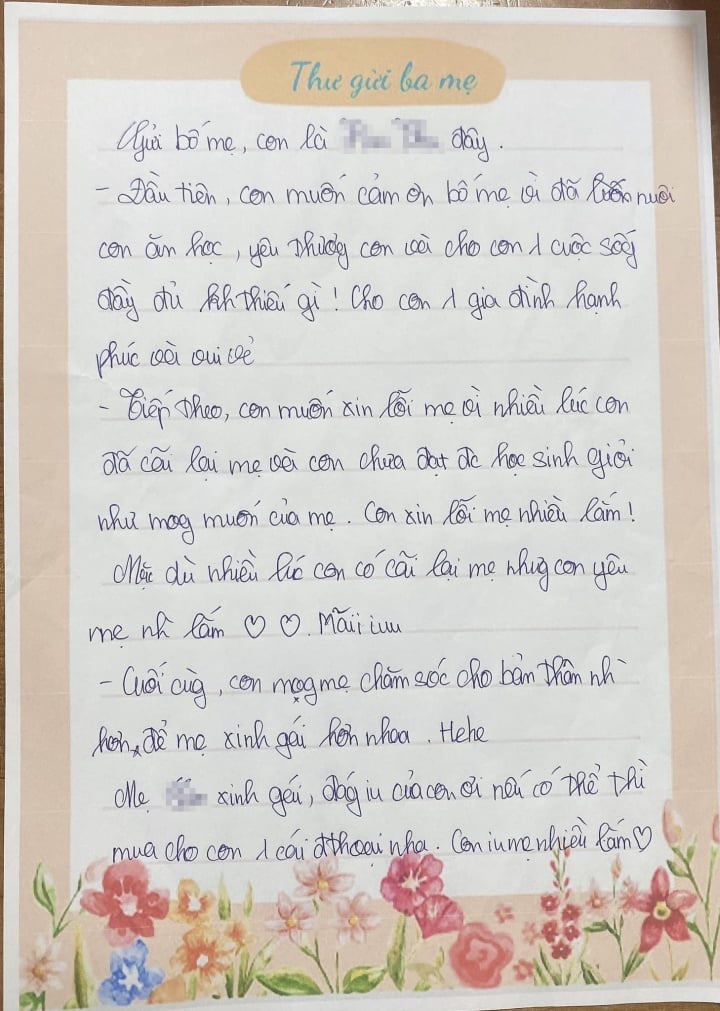 Thư gửi ba mẹ
Gửi bố mẹ, con là đây.
- Đầu tiên, con muốn cảm ơn bố mẹ vì đã nuôi
con ăn học, yêu thương con và cho con 1 cuộc sốg
đầy đủ kh thiếu gì! Cho con 1 gia đình hạnh
phúc và vui vẻ
- Tiếp theo, con muốn xin lỗi mẹ vì nhiều lúc con
đã cãi lại mẹ và con chưa đạt đc học sinh giỏi
như mog muốn của mẹ. Con xin lỗi mẹ nhiều lắm!
Mặc dù nhiều lúc con có cãi lại mẹ nhưg con yêu
mẹ nh` lắm ♡ ♡. Mãii iuu
- Cuối cùg, con mog mẹ chăm sóc cho bản thân nh`
hơn, để mẹ xinh gái hơn nhoa. Hehe
Mẹ xinh gái, đág iu của con ơi nếu có thể thì
mua cho con 1 cái đthoại nha. Con iu mẹ nhiều lắm♡